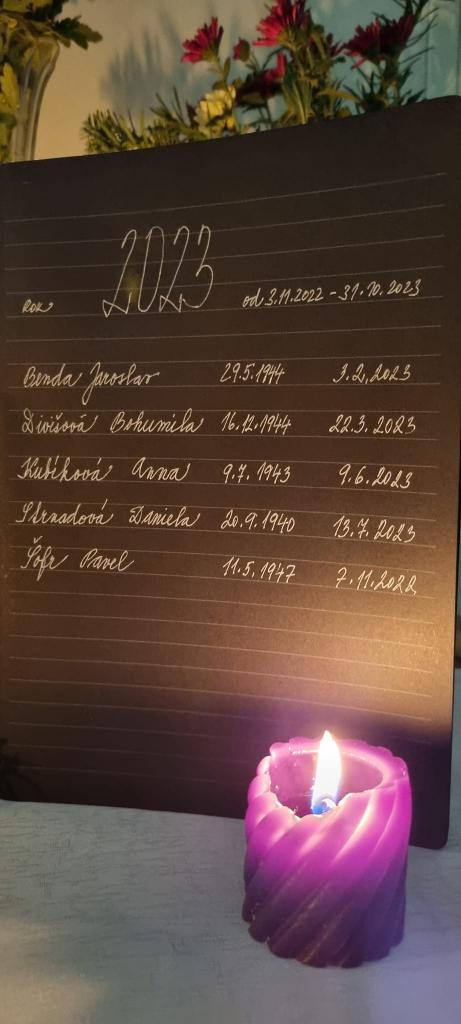 2023
rok od 3.11.2022 - 31.10.2023
Benda Jaroslav 29.5.1944 3.2.2023
Divišová Bohumila 16.12.1944 22.3.2023
Kubíková Anna 9.7.1943 9.6.2023
Strnadová Daniela 20.9.1940 13.7.2023
Šofr Pavel 11.5.1947 7.11.2022